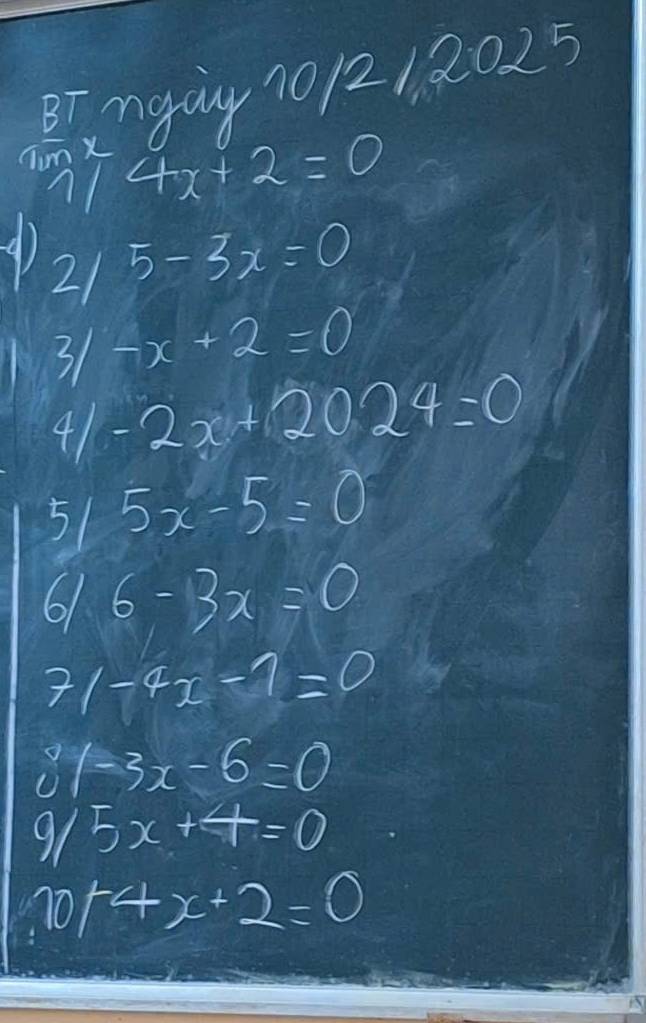 BT ngày 10/2/2025
Tìm x
1/ 4x + 2 = 0
2/ 5 - 3x = 0
3/ -x + 2 = 0
4/ -2x + 2024 = 0
5/ 5x - 5 = 0
6/ 6 - 3x = 0
7/ -4x - 1 = 0
8/ -3x - 6 = 0
9/ 5x + 4 = 0
10/ -4x + 2 = 0